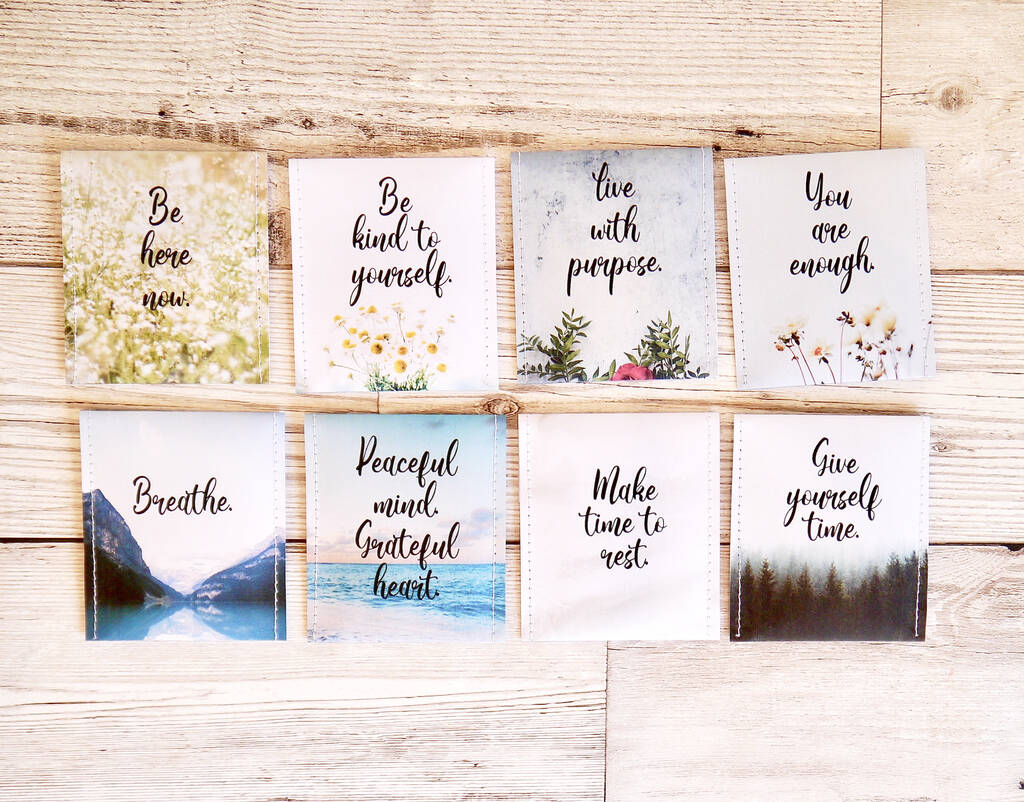 Be
here
now.
Be
kind to
yourself.
Live
with
purpose.
You
are
enough.
Breathe.
Peaceful
mind.
Grateful
heart.
Make
time to
rest.
Give
yourself
time.